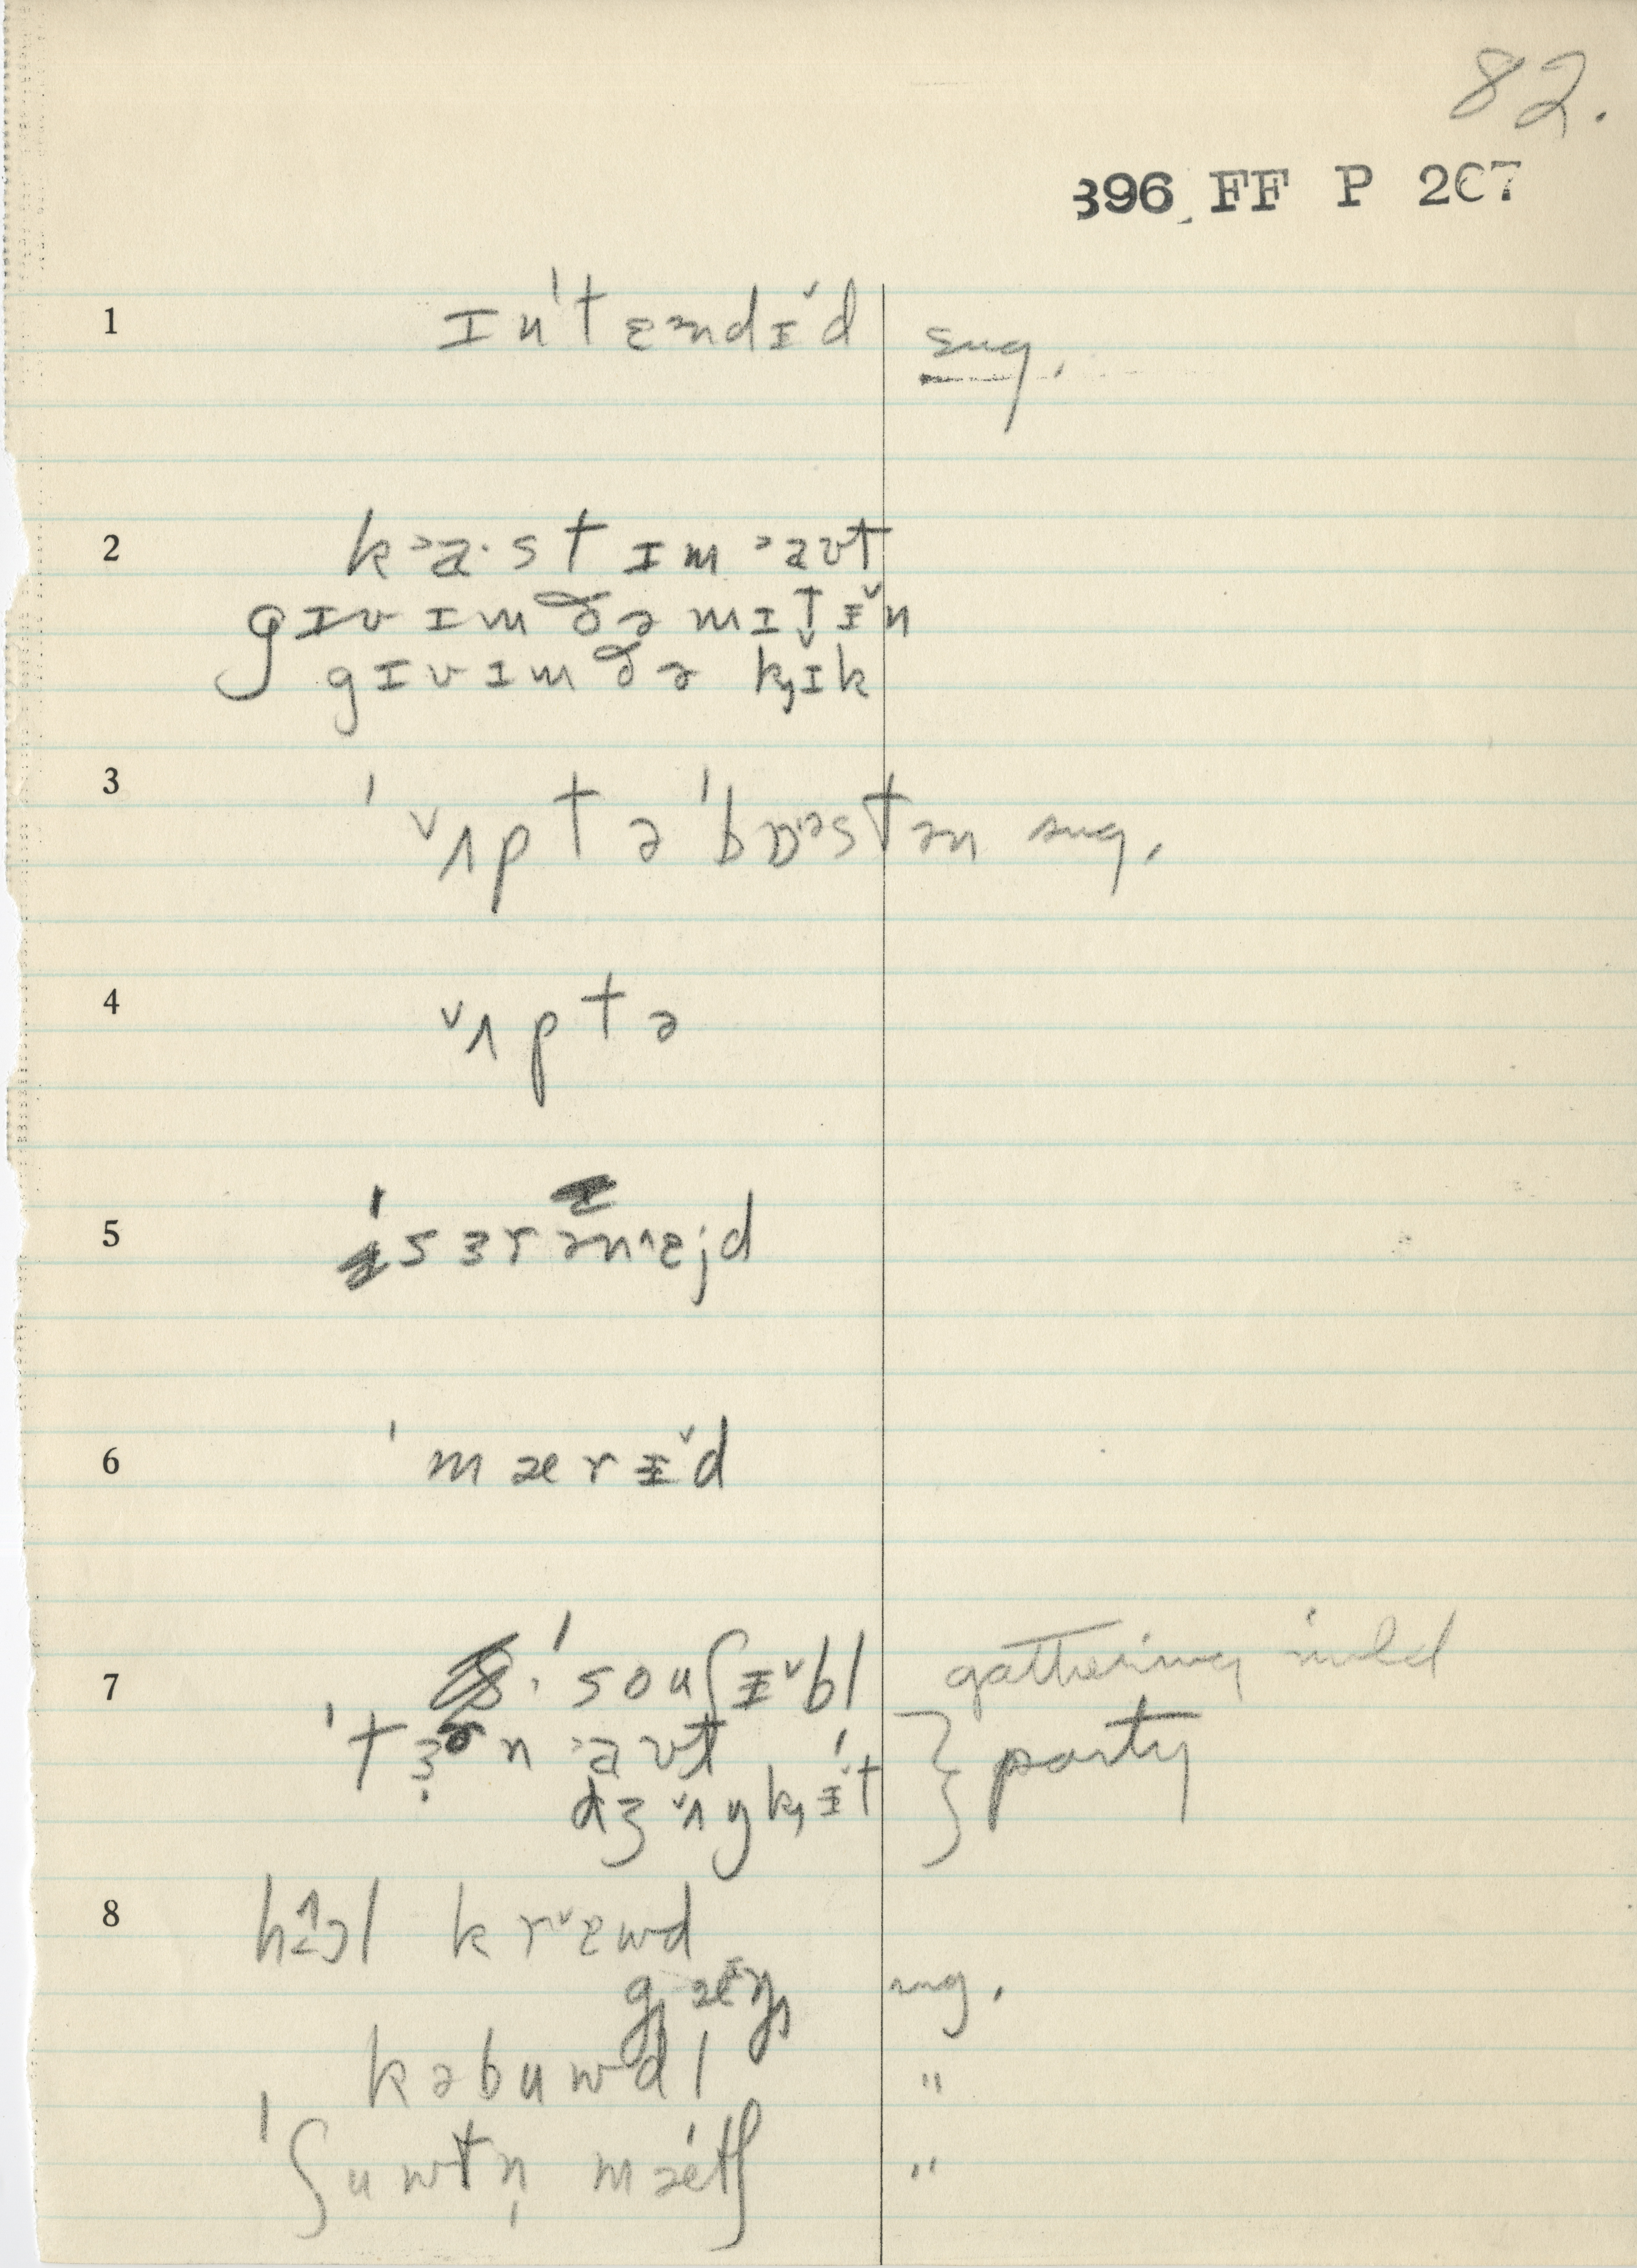 82.
396 FF P 207
1 ɪnˈtɛəndɪ˅d sug.
2 k˃a·stɪm ˃aʊt
gɪvɪm ðə mɪtɪ˅n
gɪvɪm ðə kɪ˅k
3 ˈ˅ʌptə ˈbɒ·əstən sug.
4 ˅ʌptə
5 ˈsɜrən^ɛjd
6 ˈmærɪ˅d
7 ˈsouʃɪ˅bl gathering mild
ˈtɜn ˃aʊt } party
dʒ˅ʌŋkɪ˅t
8 h^ɔl kr˅ɛwd
gæŋ sug.
kəbuwdl "
ˈʃuwtn̩ mætʃ "